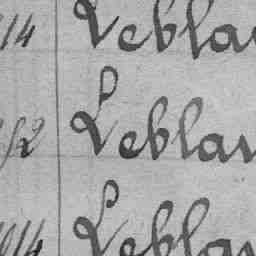 14 Leblan
52 Leblan
14 Leblan